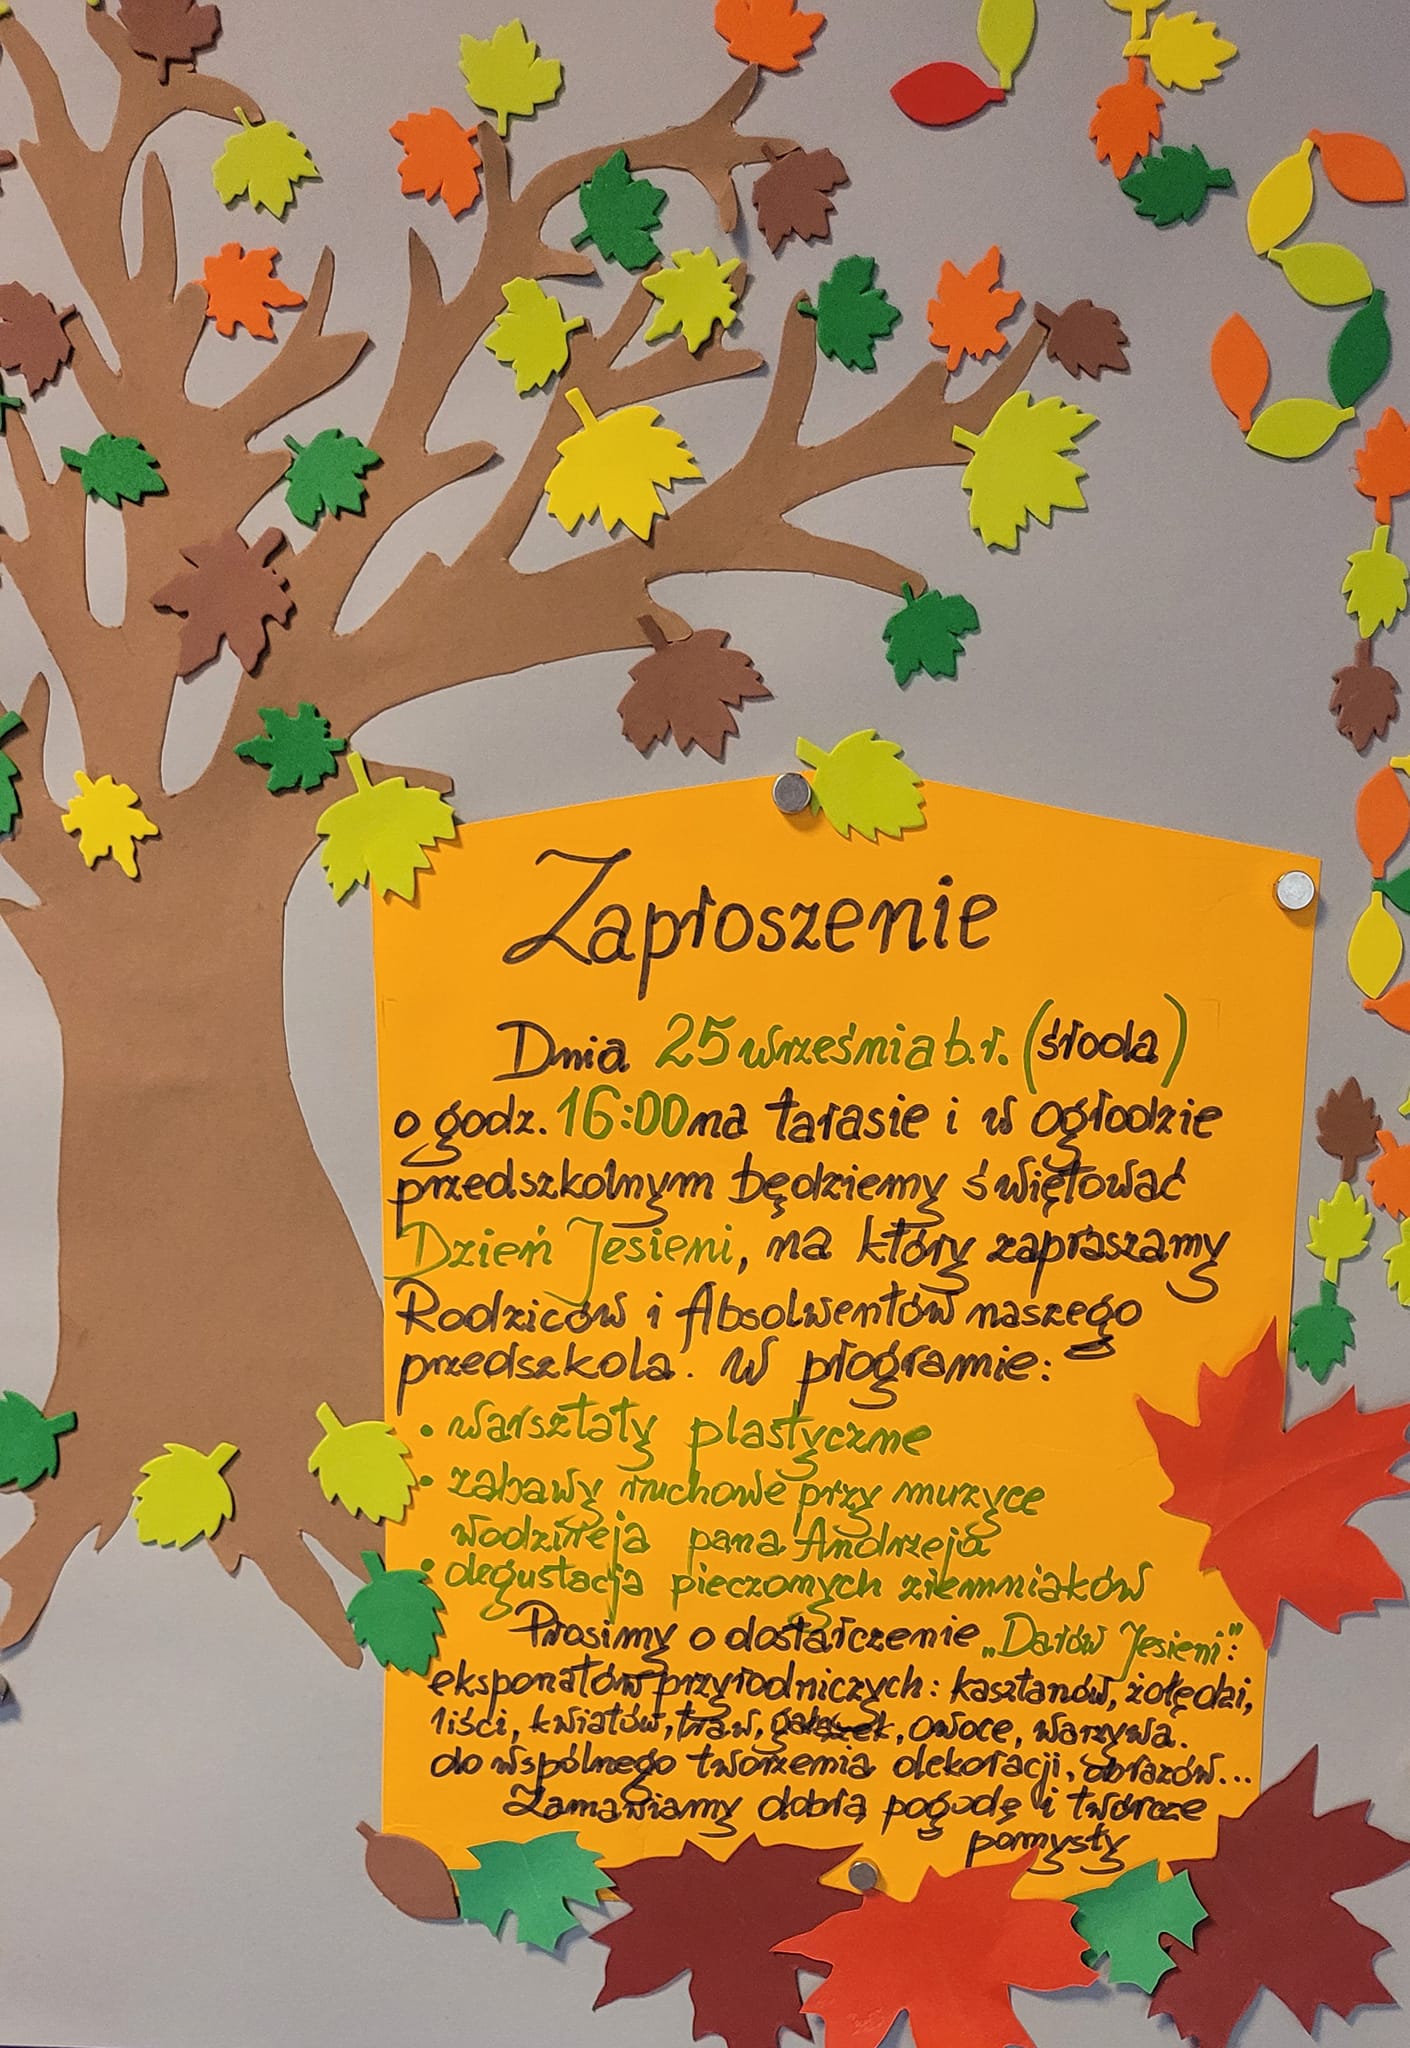 Zaproszenie
Dnia 25 września b.r. (środa)
o godz. 16:00 na tarasie i w ogrodzie
przedszkolnym będziemy świętować
Dzień Jesieni, na który zapraszamy
Rodziców i Absolwentów naszego
przedszkola. W programie:
• warsztaty plastyczne
• zabawy ruchowe przy muzyce
wodzireja pana Andrzeja
• degustacja pieczonych ziemniaków
Prosimy o dostarczenie „Darów Jesieni":
eksponatów przyrodniczych: kasztanów, żołędzi,
liści, kwiatów, traw, gałązek, owoce, warzywa.
do wspólnego tworzenia dekoracji, obrazów...
Zamawiamy dobrą pogodę i twórcze
pomysły